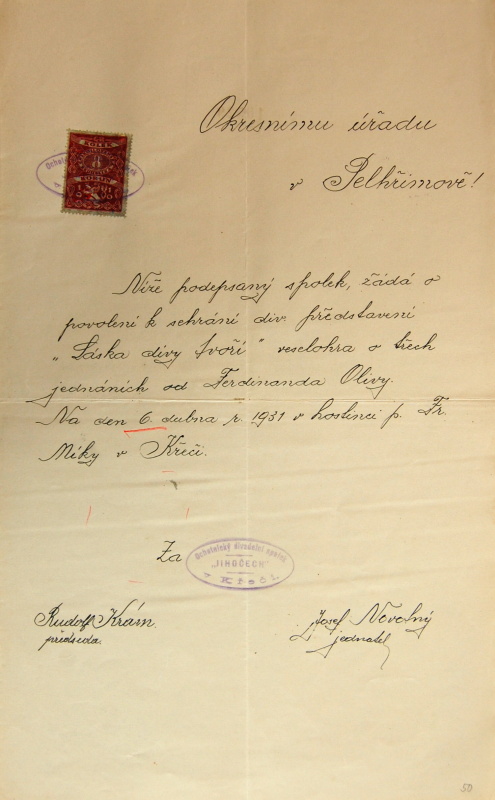 Okresnímu úřadu
v Pelhřimově!
KOLEK
8
KORUN
Níže podepsaný spolek, žádá o
povolení k sehrání div. představení
„Láska divy tvoří" veselohra o třech
jednáních od Ferdinanda Olivy.
Na den 6. dubna r. 1931 v hostinci p. Fr.
Míky v Křeči.
Za
Ochotnický divadelní spolek
„JIHOČECH"
v Křeči.
Rudolf Krám.
předseda.
Josef Novotný
jednatel
50